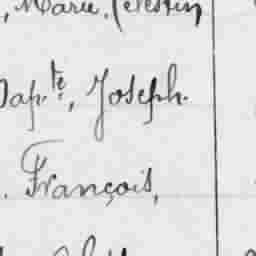 , Marie, Célestin
Bap.te, Joseph.
. François,